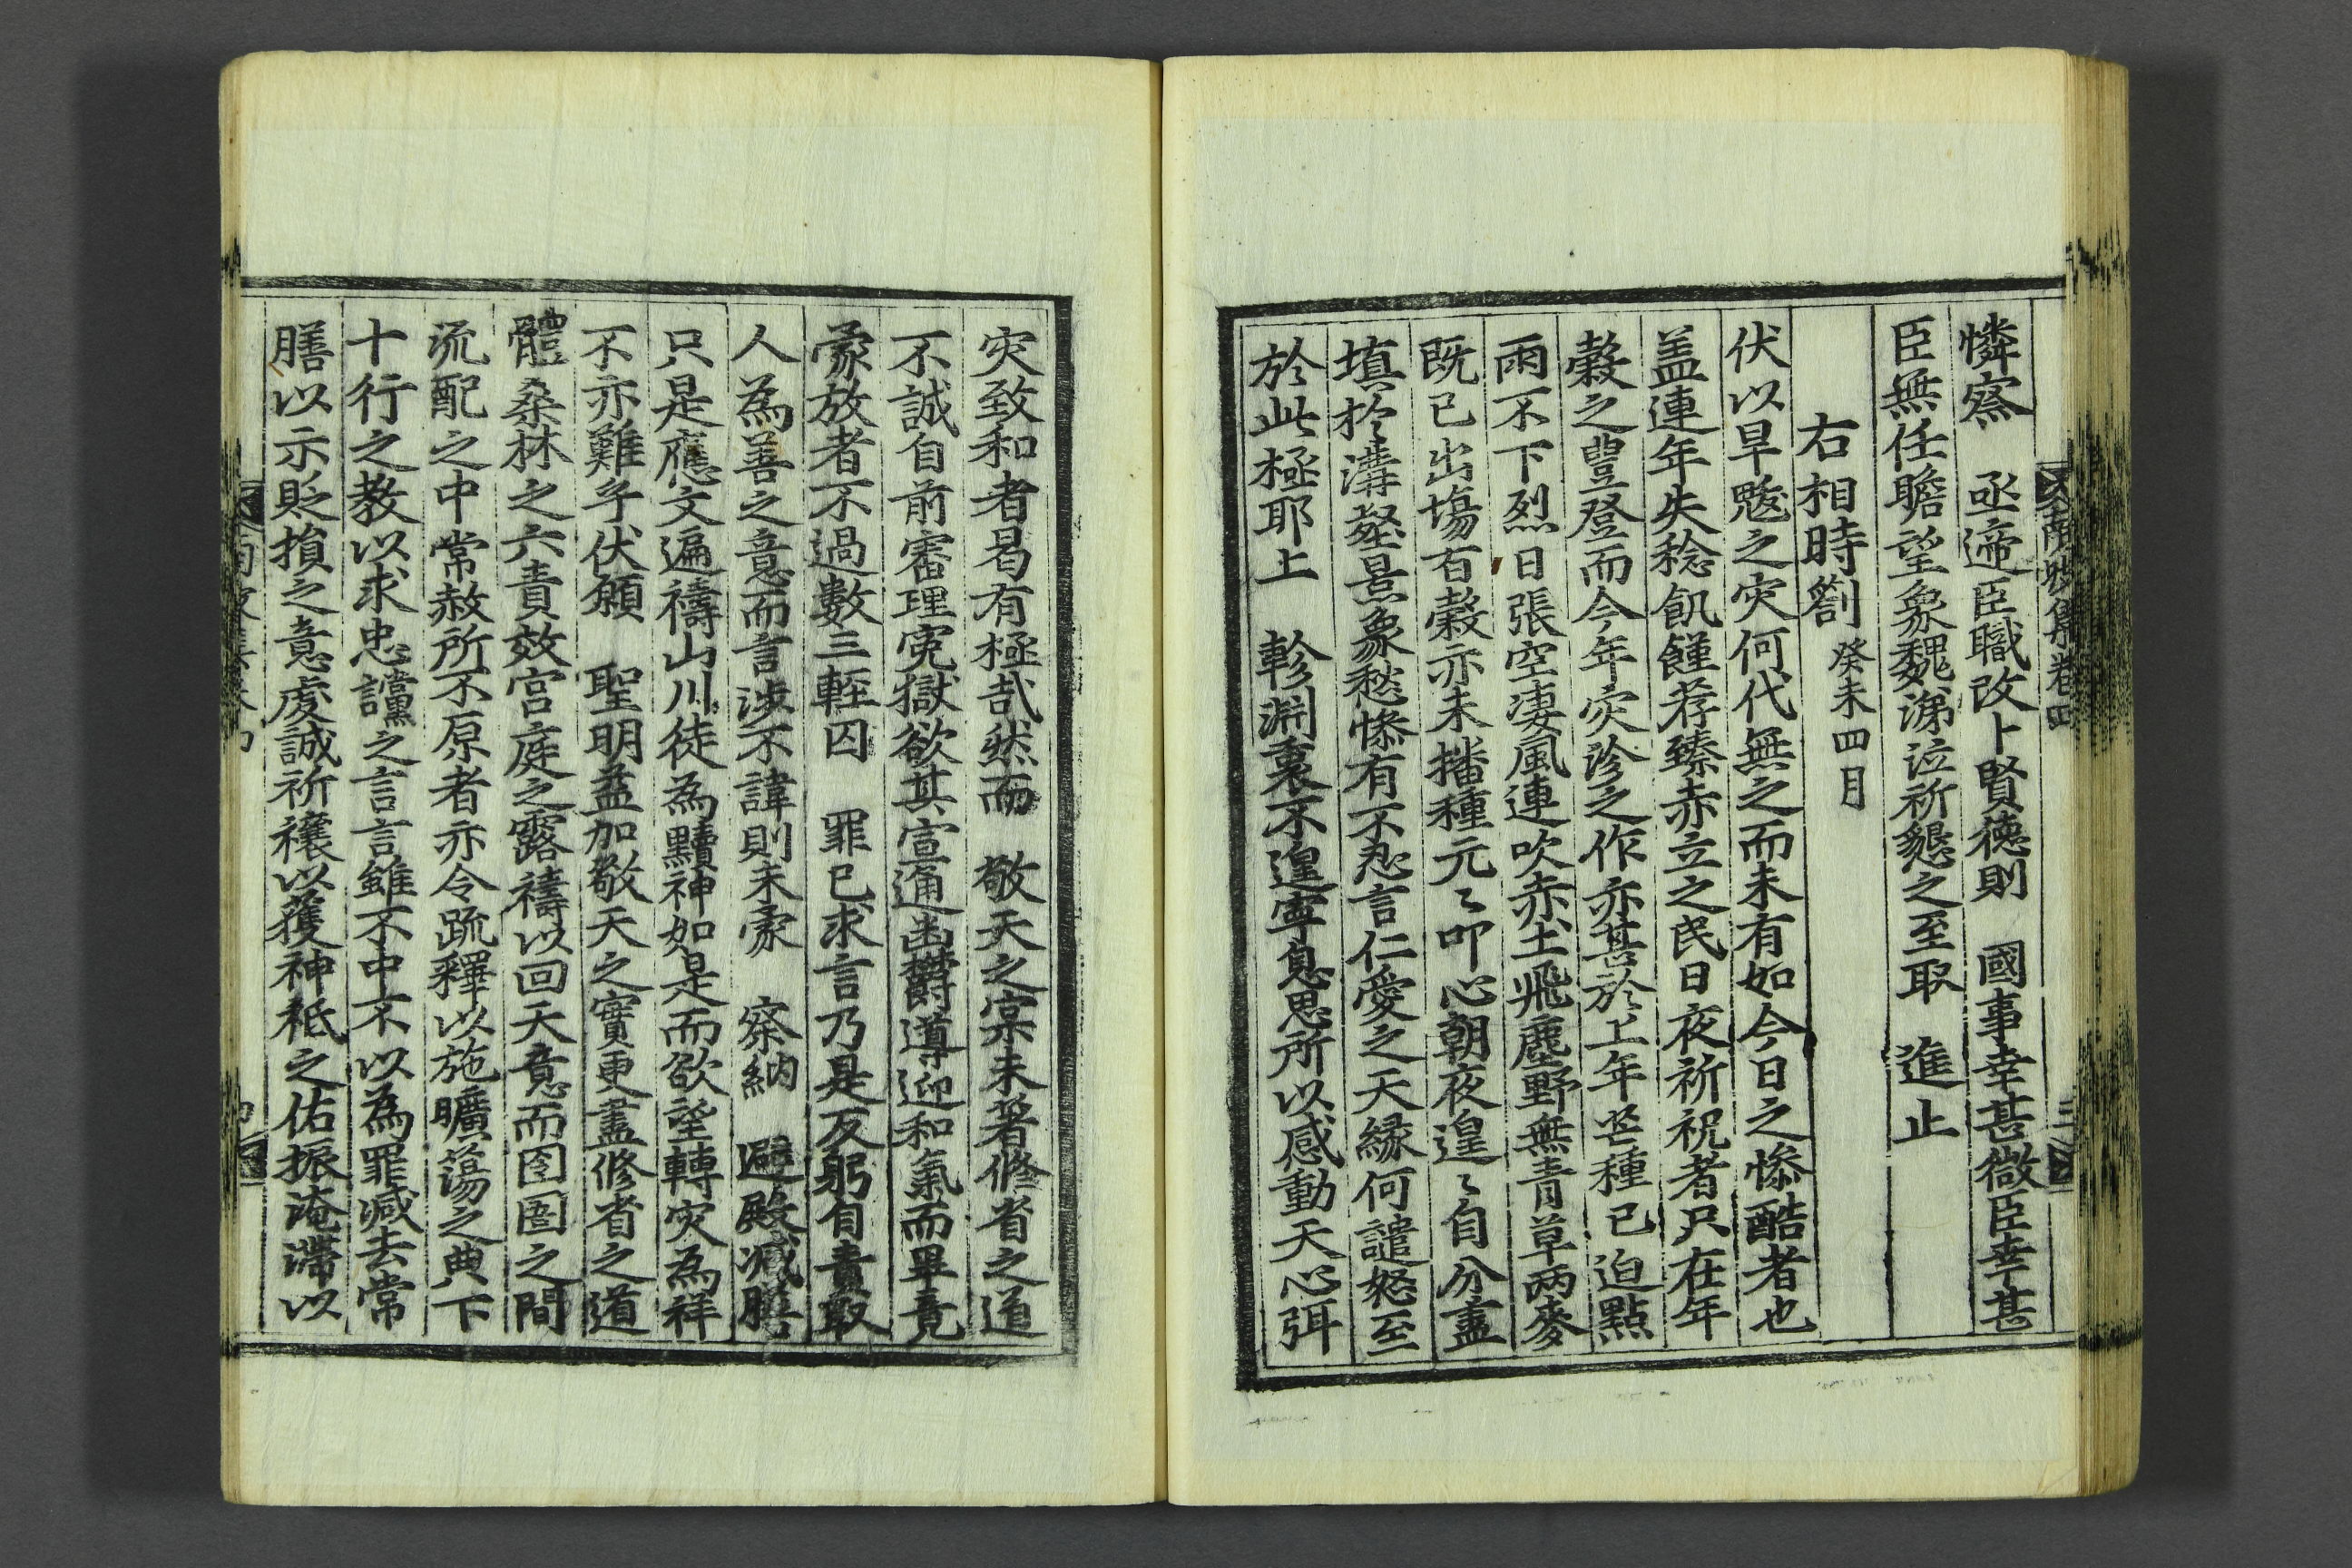 憐察　亟遞臣職改卜賢德則　國事幸甚微臣幸甚
臣無任瞻望象魏涕泣祈懇之至取　進止
右相時劄 癸未四月
伏以旱魃之灾何代無之而未有如今日之慘酷者也
盖連年失稔飢饉荐臻赤立之民日夜祈祝者只在年
糓之豊登而今年灾沴之作亦甚於上年芒種已迫點
雨不下烈日張空凄風連吹赤土飛塵野無青草兩麥
既已出塲百糓亦未播種元〻叩心朝夜遑〻自分盡
填於溝壑景象愁慘有不忍言仁愛之天緣何譴怒至
於此極耶上　軫淵衷不遑寧息思所以感動天心弭
灾致和者曷有極㢤然而　敬天之宲未著修省之道
不誠自前審理寃獄欲其宣通幽欝導迎和氣而畢竟
蒙放者不過數三輕囚　罪已求言乃是反躬自責取
人為善之意而言涉不諱則未蒙　察納　避殿减膳
只是應文遍禱山川徒為黷神如是而欲望轉灾為祥
不亦難乎伏願　聖明益加敬天之實更盡修省之道
體桑林之六責效宫庭之露禱以回天意而囹圄之間
流配之中常赦所不原者亦令疏釋以施曠蕩之典下
十行之教以求忠讜之言言雖不中不以為罪减去常
膳以示貶損之意虔誠祈禳以獲神祇之佑振淹滯以